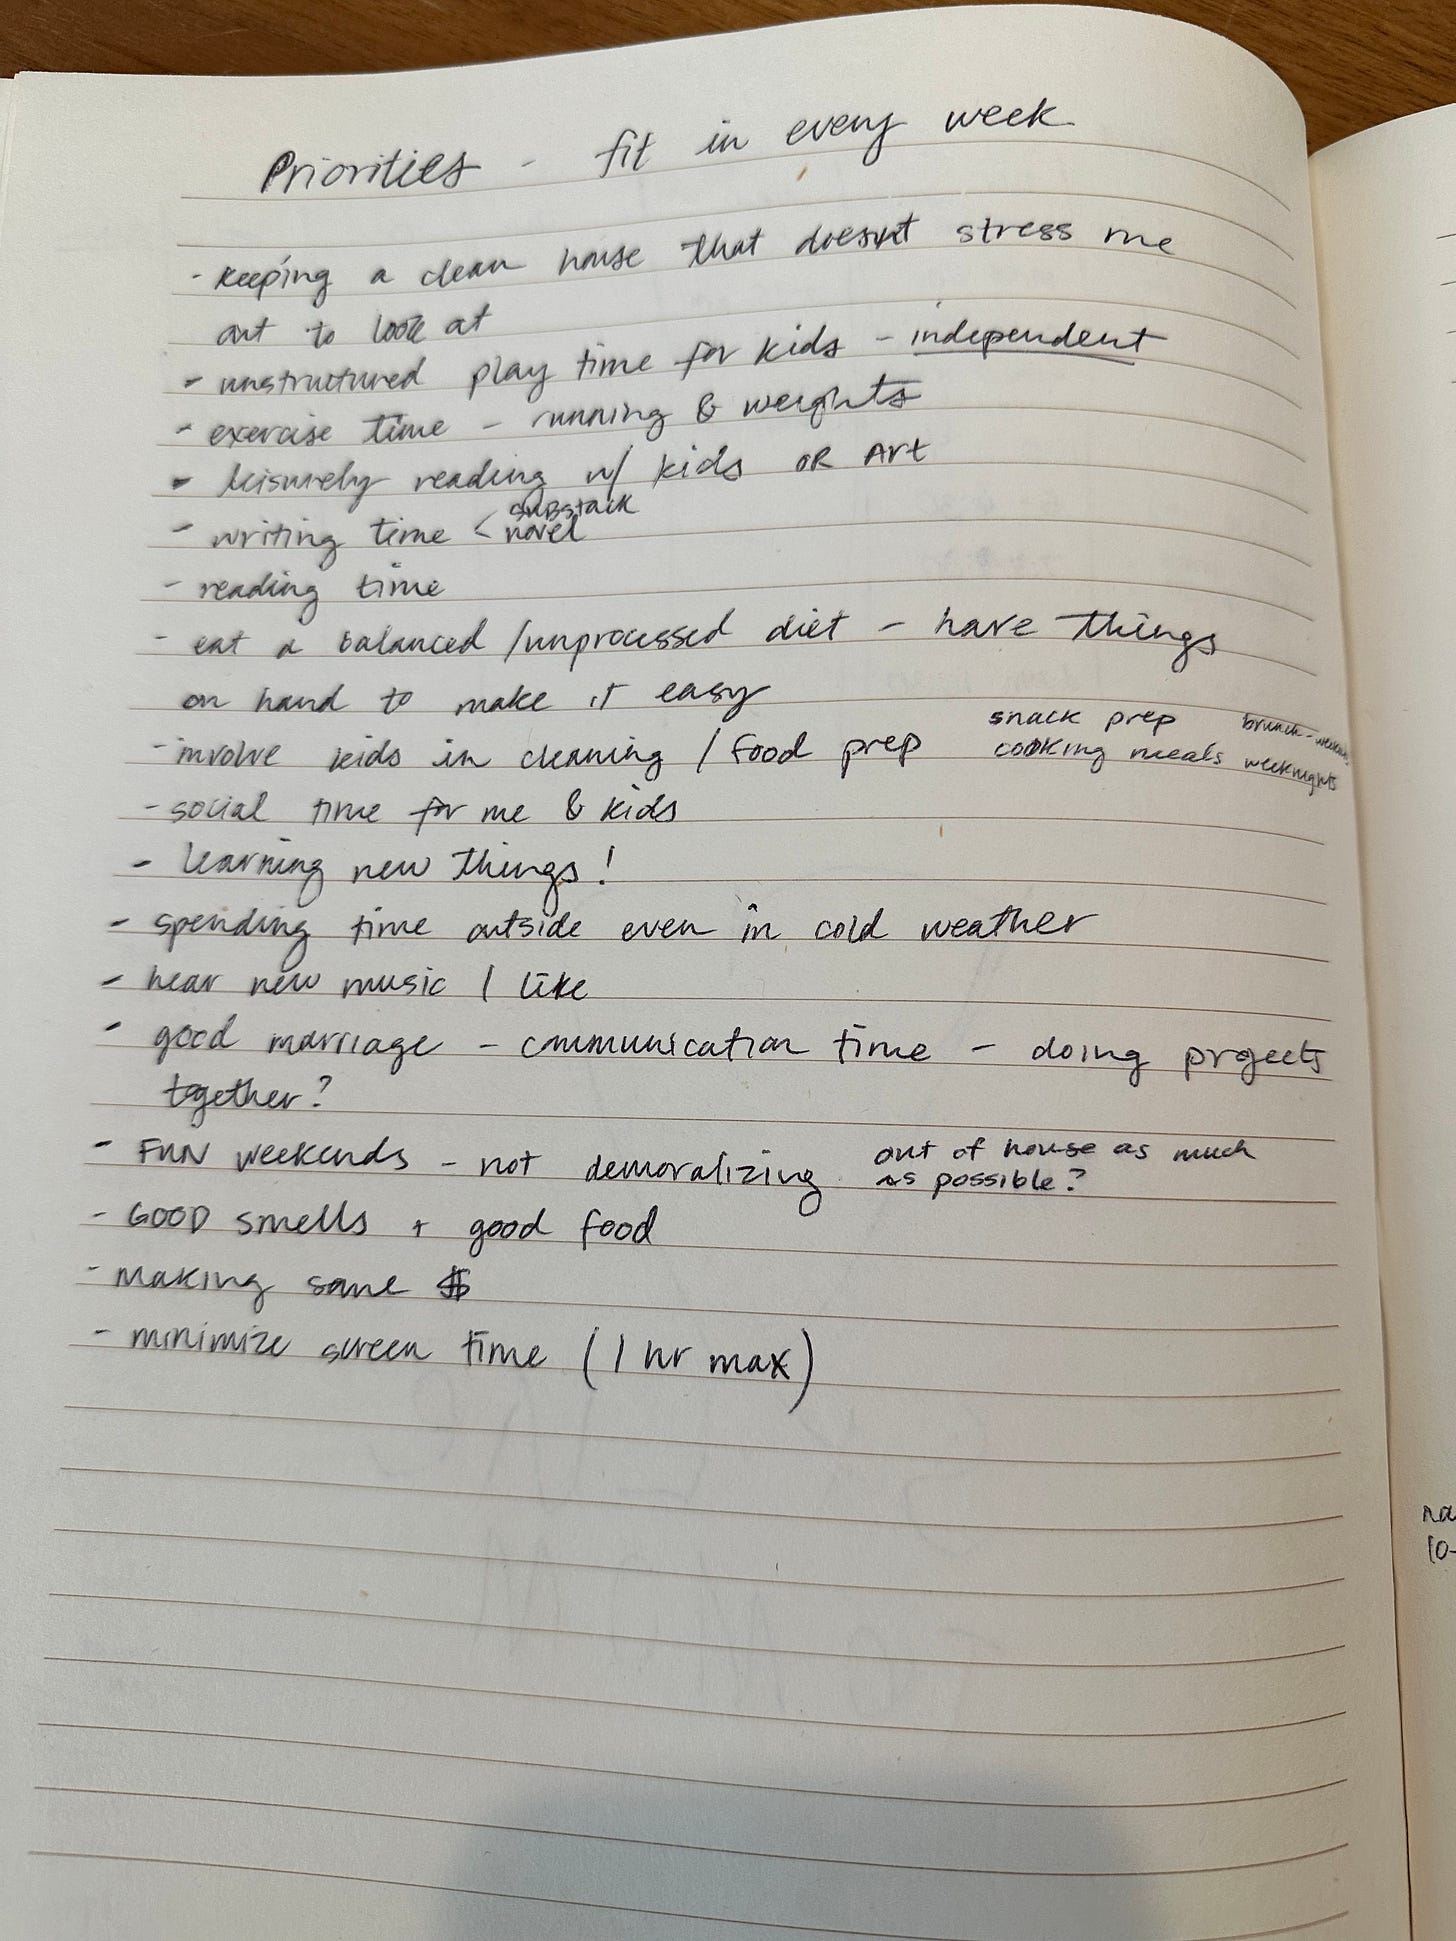 Priorities - fit in every week
- keeping a clean house that doesn't stress me
out to look at
- unstructured play time for kids - independent
- exercise time - running & weights
- leisurely reading w/ kids OR Art
- writing time < substack
novel
- reading time
- eat a balanced /unprocessed diet - have things
on hand to make it easy
- involve kids in cleaning / food prep snack prep brunch - weekends
cooking meals weeknights
- social time for me & kids
- learning new things!
- spending time outside even in cold weather
- hear new music I like
- good marriage - communication time - doing projects
together?
- FUN weekends - not demoralizing out of house as much
as possible?
- GOOD smells + good food
- making some $
- minimize screen time (1 hr max)